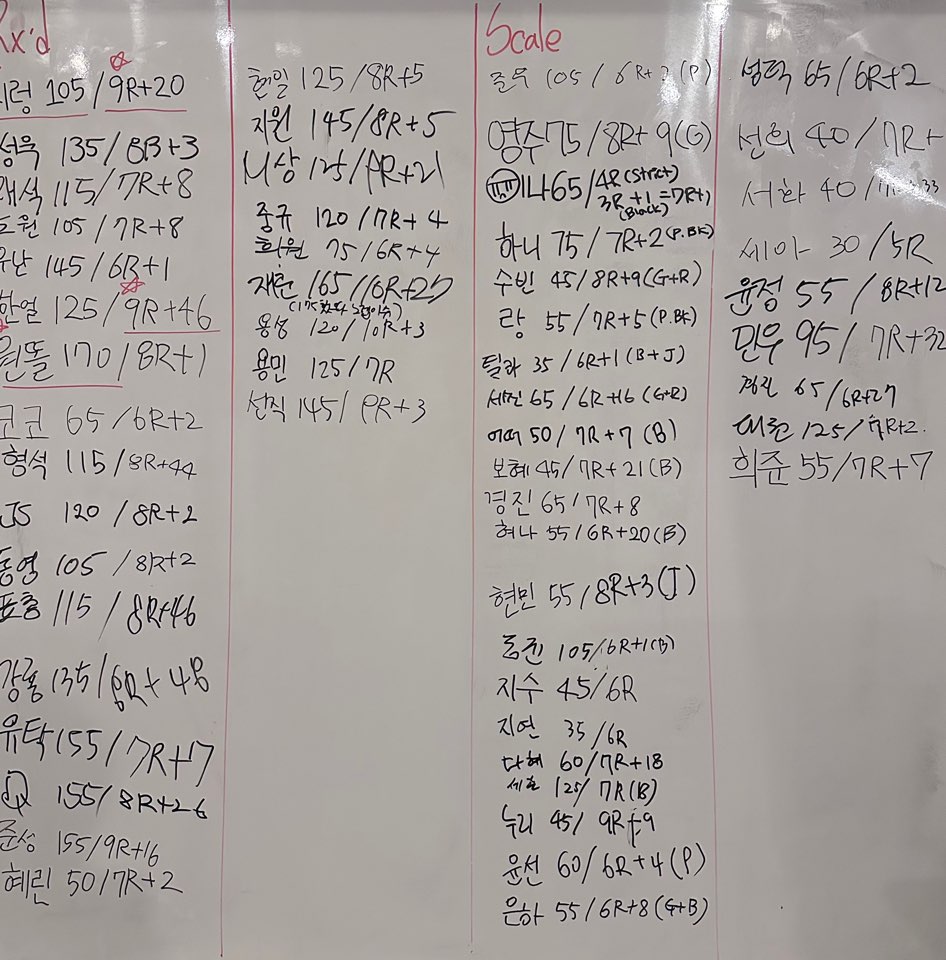 Rx'd
105/9R+20
성욱 135/8R+3
115/7R+8
105/7R+8
145/6R+1
한얼 125/9R+46
원똘 170/8R+1
코코 65/6R+2
형석 115/8R+44
JS 120/8R+2
동영 105/8R+2
115/8R+46
135/6R+48
유탁 155/7R+17
Q 155/8R+26
준성 155/9R+16
혜린 50/7R+2
현일 125/8R+5
지원 145/8R+5
중규 120/7R+4
희원 75/6R+4
용성 120/10R+3
용민 125/7R
선직 145/8R+3
Scale
105/6R+2(P)
영주 75/8R+9(G)
미나 65/4R(Strict)
3R+1=7R+1
(Black)
하니 75/7R+2(P.BK)
수빈 45/8R+9(G+R)
랑 55/7R+5(P.BK)
틸라 35/6R+1(B+J)
세진 65/6R+16(G+R)
50/7R+7(B)
보혜 45/7R+21(B)
경진 65/7R+8
허나 55/6R+20(B)
현민 55/8R+3(J)
105/6R+1(B)
지수 45/6R
지연 35/6R
다혜 60/7R+18
125/7R(B)
누리 45/9R+9
윤선 60/6R+4(P)
은하 55/6R+8(G+B)
성탁 65/6R+2
선희 40/7R+
서화 40/
세아 30/5R
윤정 55/8R+12
민우 95/7R+32
65/6R+27
125/7R+2
희준 55/7R+7